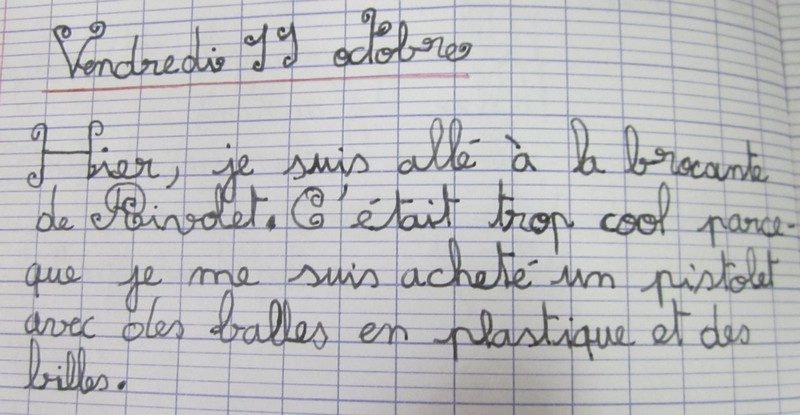 Vendredi 11 octobre
Hier, je suis allé à la brocante
de Rivolet. C'était trop cool parce-
que je me suis acheté un pistolet
avec des balles en plastique et des
billes.